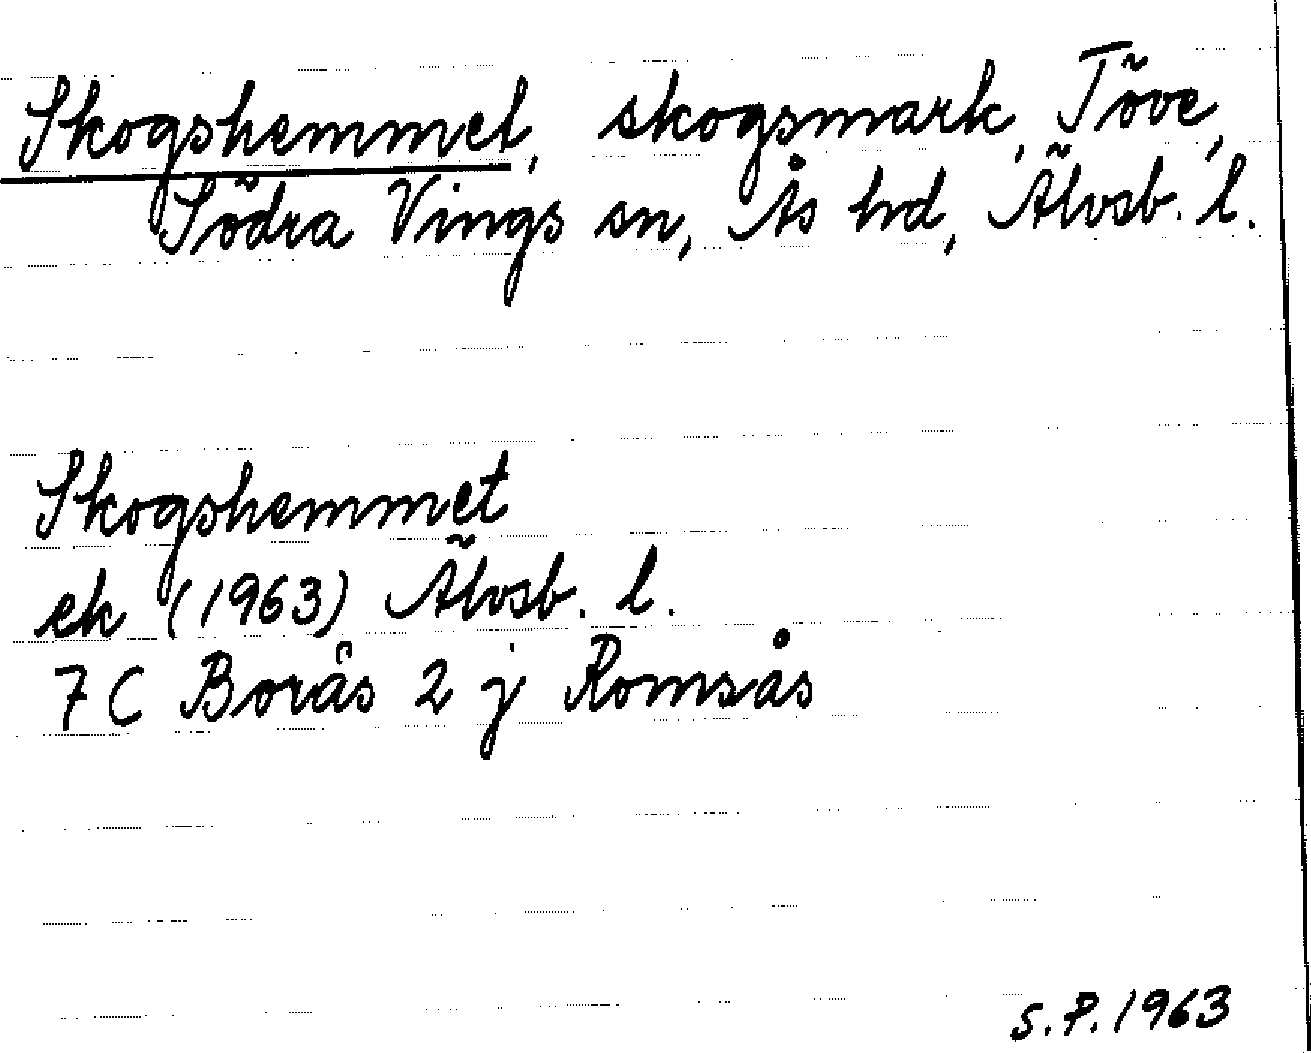 Skogshemmet, skogsmark, Töve,
Södra Vings sn, Ås hd, Älvsb. l.
Skogshemmet
ek (1963) Älvsb. l.
7 C Borås 2 j Romsås
S.P. 1963